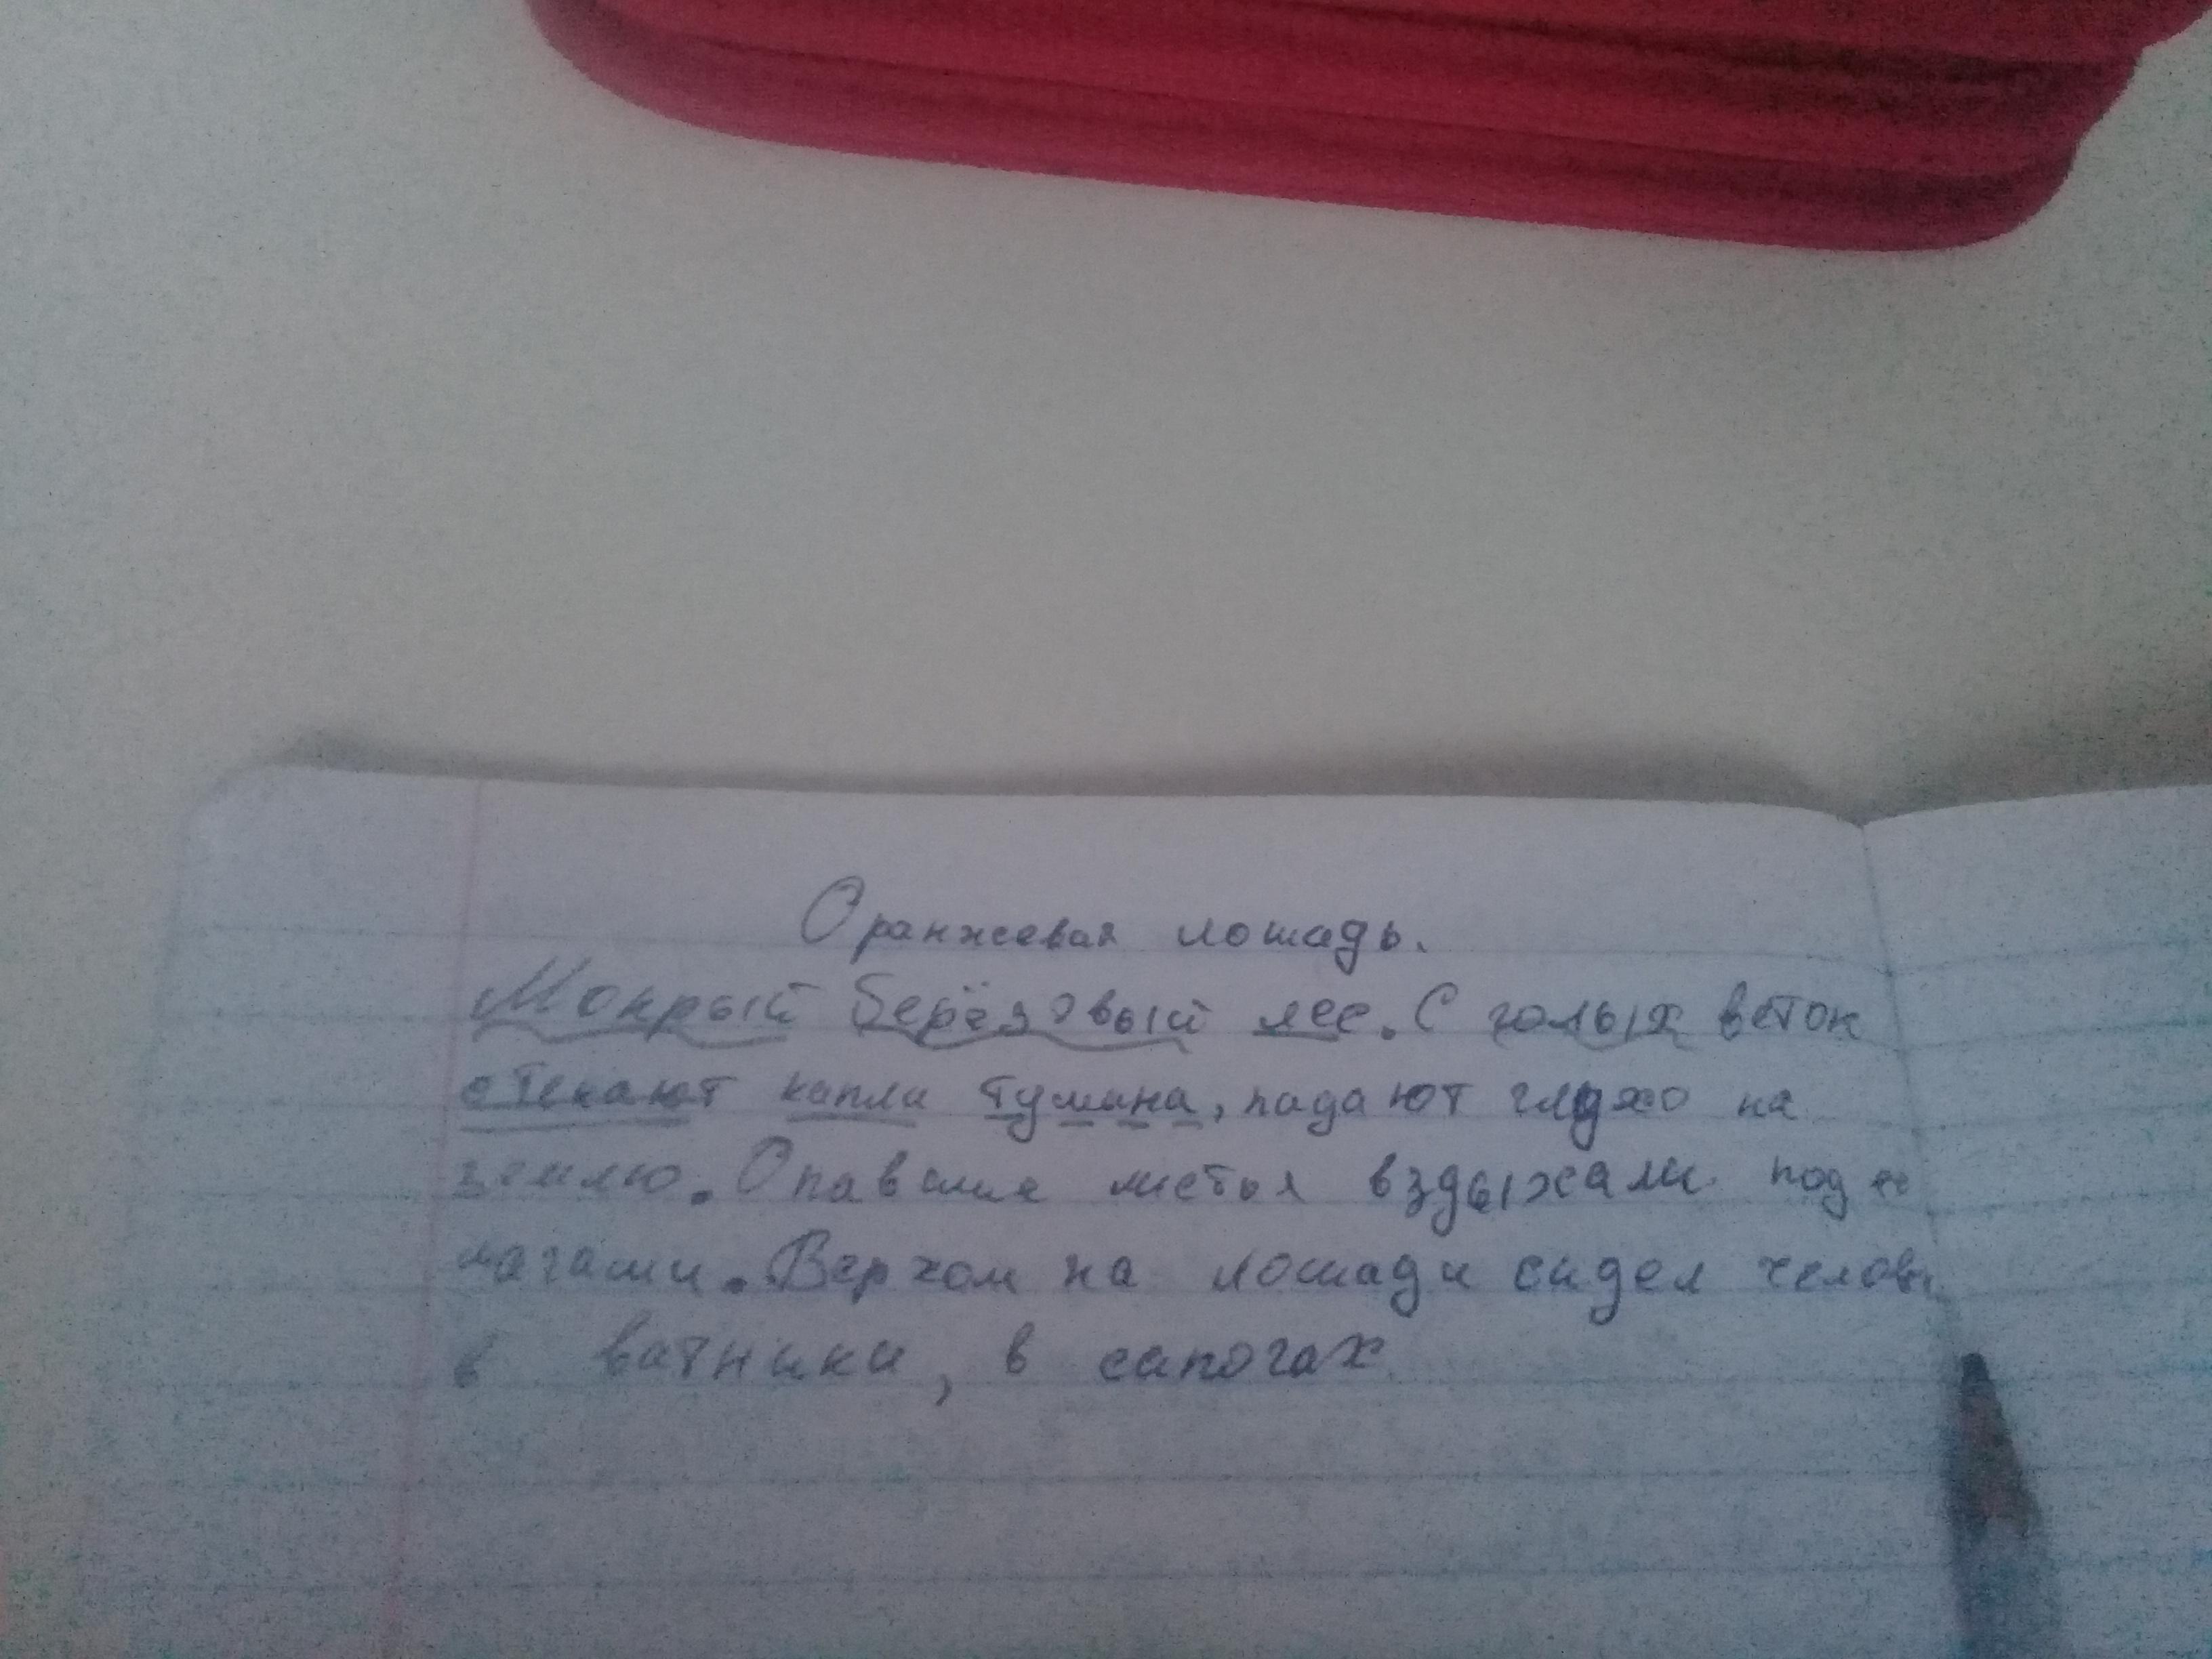 Оранжевая лошадь.
Мокрый берёзовый лес. С голых веток
стекают капли тумана, падают глухо на
землю. Опавшие листья вздыхали под
ногами. Верхом на лошади сидел
в ватники, в сапогах